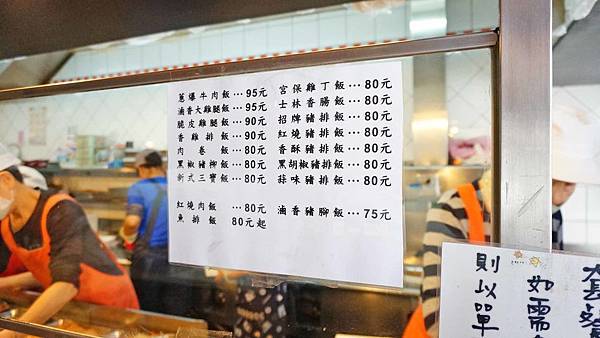 蔥爆牛肉飯…95元
滷香大雞腿飯…95元
脆皮雞腿飯…90元
香雞排飯…90元
肉卷飯…80元
黑椒豬柳飯…80元
新式三寶飯…80元
紅燒肉飯…80元
魚排飯 80元起
宮保雞丁飯…80元
士林香腸飯…80元
招牌豬排飯…80元
紅燒豬排飯…80元
香酥豬排飯…80元
黑胡椒豬排飯…80元
蒜味豬排飯…80元
滷香豬腳飯…75元
如需
則以單